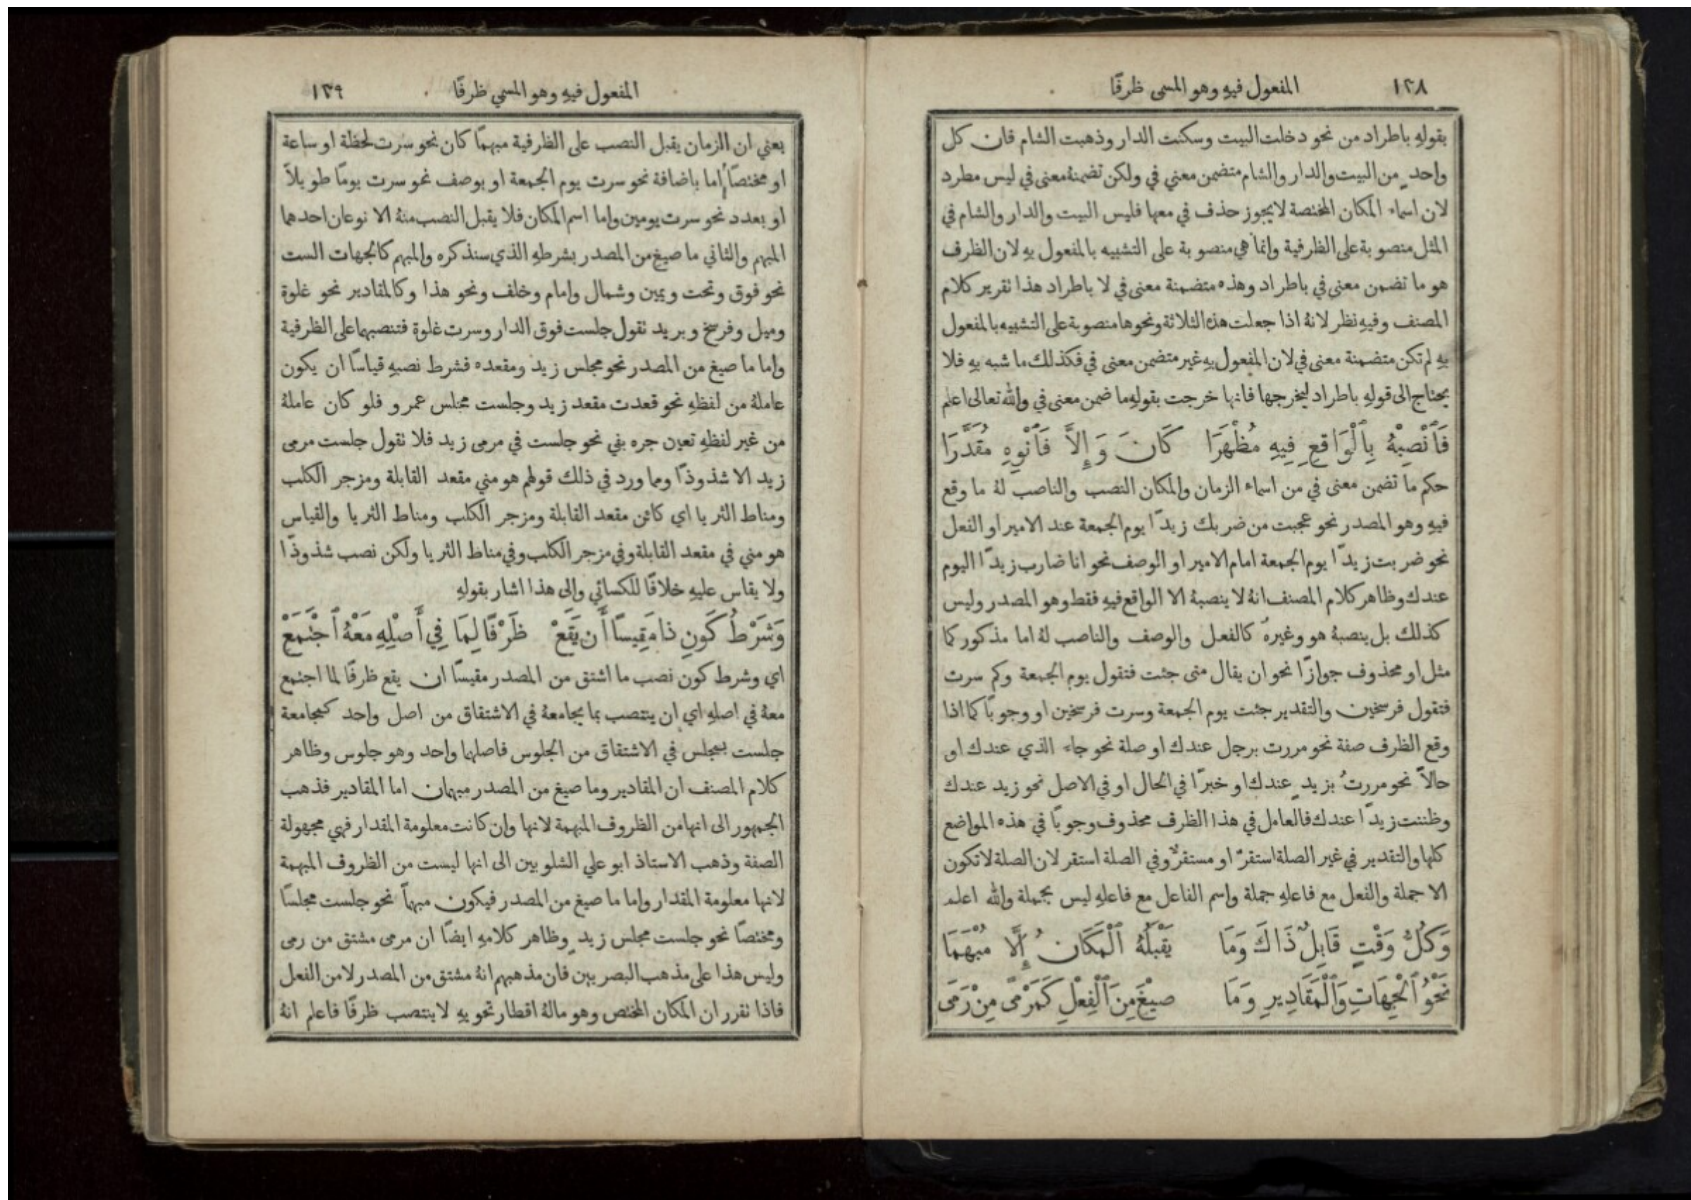 ١٢٨ المفعول فيهِ وهو المسمى ظرفًا
بقولهِ باطراد من نحو دخلت البيت وسكنت الدار وذهبت الشام فان كل
واحدٍ من البيت والدار والشام متضمن معنى في ولكن تضمنهُ معنى في ليس مطرد
لان اسماء المكان المختصة لا يجوز حذف في معها فليس البيت والدار والشام في
المثل منصوبة على الظرفية وانما هي منصوبة على التشبيه بالمفعول بهِ لان الظرف
هو ما تضمن معنى في باطراد وهذه متضمنة معنى في لا باطراد هذا تقرير كلام
المصنف وفيهِ نظر لانهُ اذا جعلت هذه الثلاثة ونحوها منصوبة على التشبيه بالمفعول
بهِ لم تكن متضمنة معنى في لان المفعول بهِ غير متضمن معنى في فكذلك ما شبه بهِ فلا
يحتاج الى قولهِ باطراد ليخرجها فانها خرجت بقولهِ ما ضمن معنى في والله تعالى اعلم
فَٱنْصِبْهُ بِٱلْوَاقِعِ فِيهِ مُظْهَرَا كَانَ وَإِلاَّ فَٱنْوِهِ مُقَدَّرَا
حكم ما تضمن معنى في من اسماء الزمان والمكان النصب والناصب لهُ ما وقع
فيهِ وهو المصدر نحو عجبت من ضربك زيدًا يوم الجمعة عند الامير او الفعل
نحو ضربت زيدًا يوم الجمعة امام الامير او الوصف نحو انا ضارب زيدًا اليوم
عندك وظاهر كلام المصنف انهُ لا ينصبهُ الا الواقع فيهِ فقط وهو المصدر وليس
كذلك بل ينصبهُ هو وغيرهُ كالفعل والوصف والناصب لهُ اما مذكور كما
مثل او محذوف جوازًا نحو ان يقال متى جئت فتقول يوم الجمعة وكم سرت
فتقول فرسخين والتقدير جئت يوم الجمعة وسرت فرسخين او وجوبًا كما اذا
وقع الظرف صفة نحو مررت برجل عندك او صلة نحو جاء الذي عندك او
حالاً نحو مررتُ بزيدٍ عندك او خبرًا في الحال او في الاصل نحو زيد عندك
وظننت زيدًا عندك فالعامل في هذا الظرف محذوف وجوبًا في هذه المواضع
كلها والتقدير في غير الصلة استقرّ او مستقرٌّ وفي الصلة استقر لان الصلة لا تكون
الا جملة والفعل مع فاعلهِ جملة واسم الفاعل مع فاعلهِ ليس بجملة والله اعلم
وَكُلُّ وَقْتٍ قَابِلٌ ذَاكَ وَمَا يَقْبَلُهُ ٱلْمَكَانُ إِلَّا مُبْهَمَا
نَحْوُ ٱلْجِهَاتِ وَٱلْمَقَادِيرِ وَمَا صِيغَ مِنَ ٱلْفِعْلِ كَمَرْمًى مِنْ رَمَى
المفعول فيهِ وهو المسمى ظرفًا ١٢٩
يعني ان الزمان يقبل النصب على الظرفية مبهمًا كان نحو سرت لحظة او ساعة
او مختصًا اما باضافة نحو سرت يوم الجمعة او بوصف نحو سرت يومًا طويلاً
او بعدد نحو سرت يومين واما اسم المكان فلا يقبل النصب منهُ الا نوعان احدهما
المبهم والثاني ما صيغ من المصدر بشرطهِ الذي سنذكره والمبهم كالجهات الست
نحو فوق وتحت ويمين وشمال وامام وخلف ونحو هذا وكالمقادير نحو غلوة
وميل وفرسخ وبريد تقول جلست فوق الدار وسرت غلوة فتنصبهما على الظرفية
واما ما صيغ من المصدر نحو مجلس زيد ومقعده فشرط نصبهِ قياسًا ان يكون
عاملهُ من لفظهِ نحو قعدت مقعد زيد وجلست مجلس عمرو فلو كان عاملهُ
من غير لفظهِ تعين جره بفي نحو جلست في مرمى زيد فلا تقول جلست مرمى
زيد الا شذوذًا ومما ورد في ذلك قولهم هو مني مقعد القابلة ومزجر الكلب
ومناط الثريا اي كائن مقعد القابلة ومزجر الكلب ومناط الثريا والقياس
هو مني في مقعد القابلة وفي مزجر الكلب وفي مناط الثريا ولكن نصب شذوذًا
ولا يقاس عليهِ خلافًا للكسائي والى هذا اشار بقولهِ
وَشَرْطُ كَوْنِ ذَا مَقِيسًا أَنْ يَقَعْ ظَرْفًا لِمَا فِي أَصْلِهِ مَعْهُ ٱجْتَمَعْ
اي وشرط كون نصب ما اشتق من المصدر مقيسًا ان يقع ظرفًا لما اجتمع
معهُ في اصلهِ اي ان ينتصب بما يجامعهُ في الاشتقاق من اصل واحد كمجامعة
جلست بمجلس في الاشتقاق من الجلوس فاصلها واحد وهو جلوس وظاهر
كلام المصنف ان المقادير وما صيغ من المصدر مبهمان اما المقادير فذهب
الجمهور الى انها من الظروف المبهمة لانها وان كانت معلومة المقدار فهي مجهولة
الصفة وذهب الاستاذ ابو علي الشلوبين الى انها ليست من الظروف المبهمة
لانها معلومة المقدار واما ما صيغ من المصدر فيكون مبهمًا نحو جلست مجلسًا
ومختصًا نحو جلست مجلس زيدٍ وظاهر كلامهِ ايضًا ان مرمى مشتق من رمى
وليس هذا على مذهب البصريين فان مذهبهم انهُ مشتق من المصدر لا من الفعل
فاذا تقرر ان المكان المختص وهو مالهُ اقطار تحويهِ لا ينتصب ظرفًا فاعلم انهُ